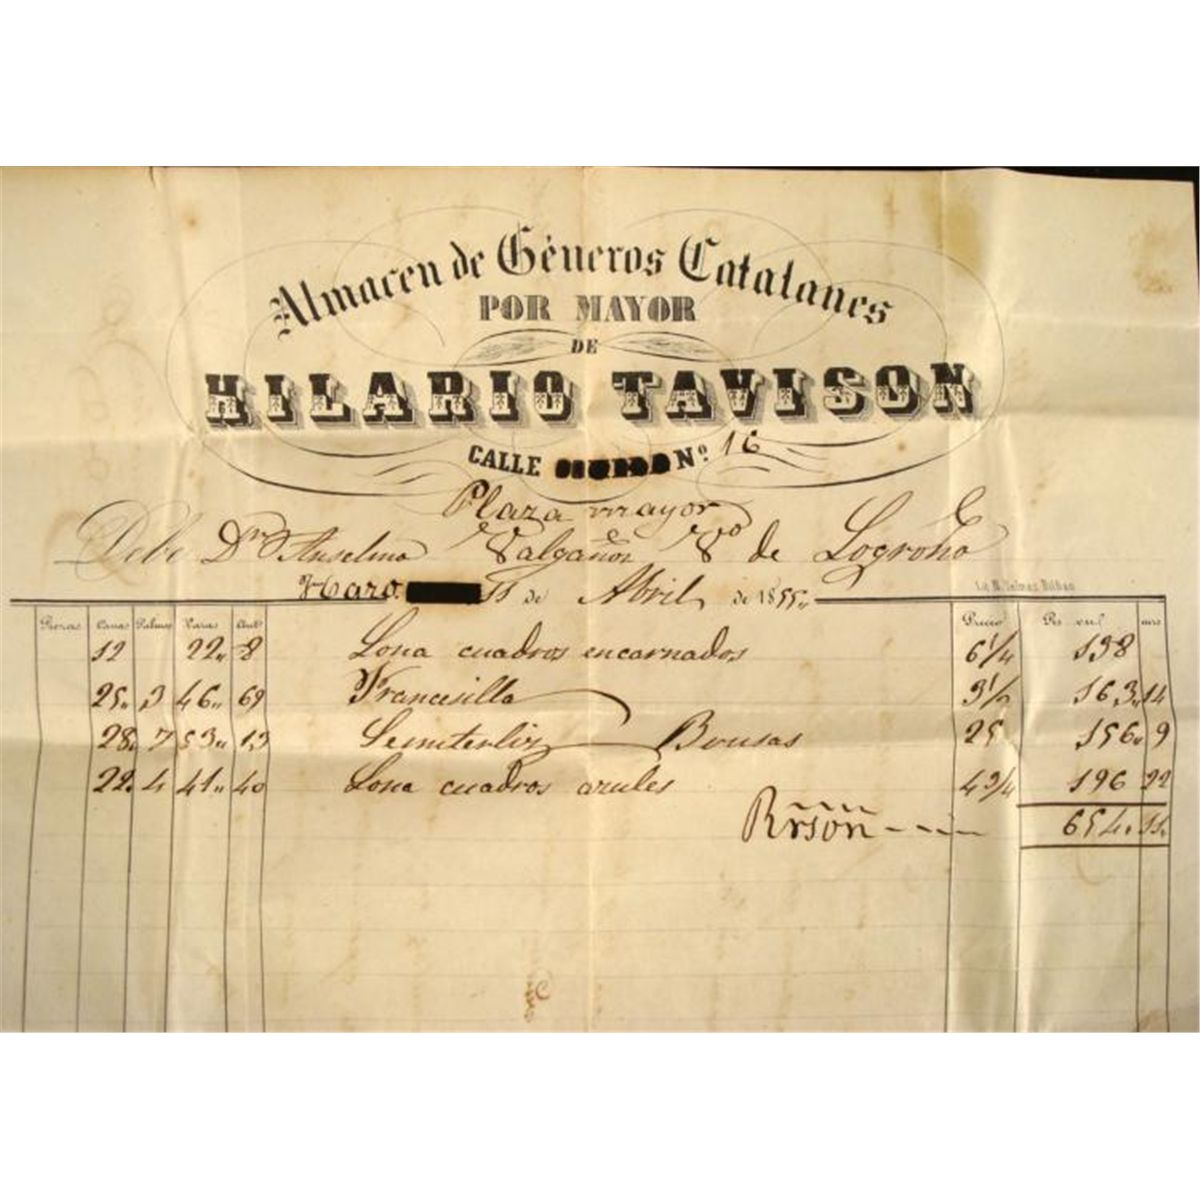 Almacen de Géneros Catalanes
POR MAYOR
DE
HILARIO TAVISON
CALLE Nº 16
Plaza mayor
Debe Dn Anselmo Valgañon Vo de Logroño
Haro 11 de Abril de 1855
Piezas Canas Palmos Varas Precio Rs vn mrs
12 22 8 Lona cuadros encarnados 6 1/4 138
25 3 46 69 Francesilla 3 1/2 163 14
28 7 53 13 Bousas 25 156 9
22 4 41 40 Lona cuadros azules 4 3/4 196 22
654 11